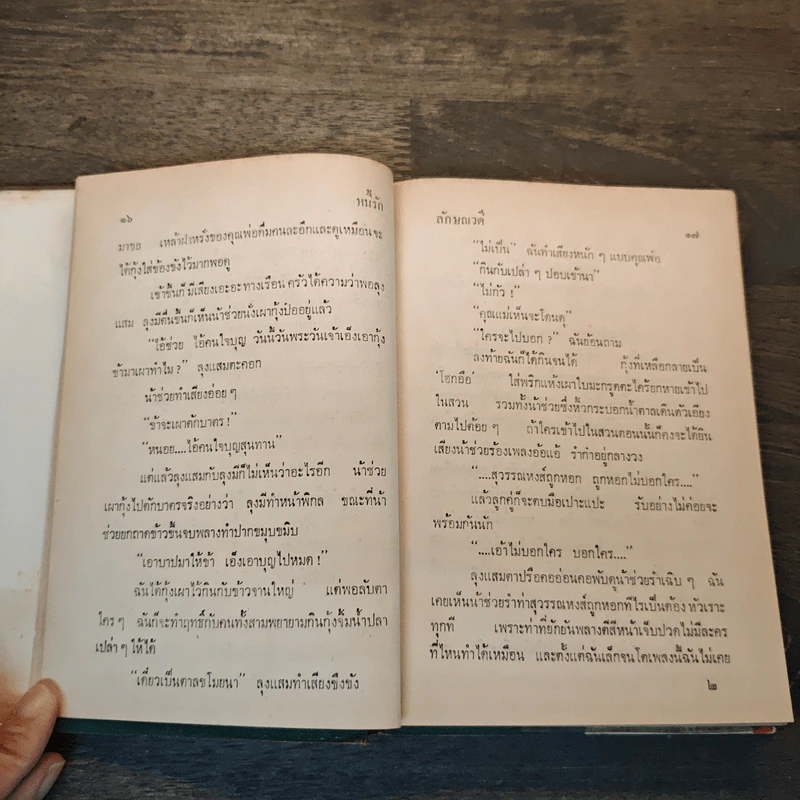 ๑๖ หนี้รัก
มาขอ เหล้าฝาหรั่งของคุณพ่อดื่มคนละอึกและดูเหมือนจะ
ได้กุ้งใส่ข้องขังไว้มากพอดู
เช้าขึ้นก็มีเสียงเอะอะทางเรือนครัวได้ความว่าพอลุง
แสม ลุงมีตื่นขึ้นก็เห็นน้าช่วยนั่งเผากุ้งป๋ออยู่แล้ว
“ไอ้ช่วย ไอ้คนใจบุญ วันนี้วันพระวันเจ้าเอ็งเอากุ้ง
ข้ามาเผาทำไม ?” ลุงแสมตะคอก
น้าช่วยทำเสียงอ่อย ๆ
“ข้าจะเผาตักบาตร !”
“หนอย....ไอ้คนใจบุญสุนทาน”
แต่แล้วลุงแสมกับลุงมีก็ไม่เห็นว่าอะไรอีก น้าช่วย
เผากุ้งไปตักบาตรจริงอย่างว่า ลุงมีทำหน้าพิกล ขณะที่น้า
ช่วยยกถาดข้าวขึ้นจบพลางทำปากขมุบขมิบ
“เอาบาปมาให้ข้า เอ็งเอาบุญไปหมด !”
ฉันได้กุ้งเผาไว้กินกับข้าวจานใหญ่ แต่พอลับตา
ใคร ๆ ฉันก็จะทำฤทธิ์กับคนทั้งสามพยายามกินกุ้งจิ้มน้ำปลา
เปล่า ๆ ให้ได้
“เดี๋ยวเป็นตาลขโมยนา” ลุงแสมทำเสียงขึงขัง
ลักษณวดี ๑๗
“ไม่เป็น” ฉันทำเสียงหนัก ๆ แบบคุณพ่อ
“กินกับเปล่า ๆ ปอบเข้านา”
“ไม่กัว !”
“คุณแม่เห็นจะโดนดุ”
“ใครจะไปบอก ?” ฉันย้อนถาม
ลงท้ายฉันก็ได้กินจนได้ กุ้งที่เหลือกลายเป็น
‘โฮกอือ’ ใส่พริกแห้งเผาใบมะกรูดตะไคร้ยกหายเข้าไป
ในสวน รวมทั้งน้าช่วยซึ่งหิ้วกระบอกน้ำตาลเดินตัวเอียง
ตามไปต้อย ๆ ถ้าใครเข้าไปในสวนตอนนั้นก็คงจะได้ยิน
เสียงน้าช่วยร้องเพลงอ้อแอ้ รำทำอยู่กลางวง
“....สุวรรณหงส์ถูกหอก ถูกหอกไม่บอกใคร....”
แล้วลูกคู่ก็จะตบมือเปาะแปะ รับอย่างไม่ค่อยจะ
พร้อมกันนัก
“....เอ้าไม่บอกใคร บอกใคร....”
ลุงแสมตาปรือคออ่อนคอพับดูน้าช่วยรำเฉิบ ๆ ฉัน
เคยเห็นน้าช่วยรำท่าสุวรรณหงส์ถูกหอกทีไรเป็นต้อง หัวเราะ
ทุกที เพราะท่าที่ยักยันพลางตีสีหน้าเจ็บปวดไม่มีละคร
ที่ไหนทำได้เหมือน และตั้งแต่ฉันเล็กจนโตเพลงนี้ฉันไม่เคย
๒